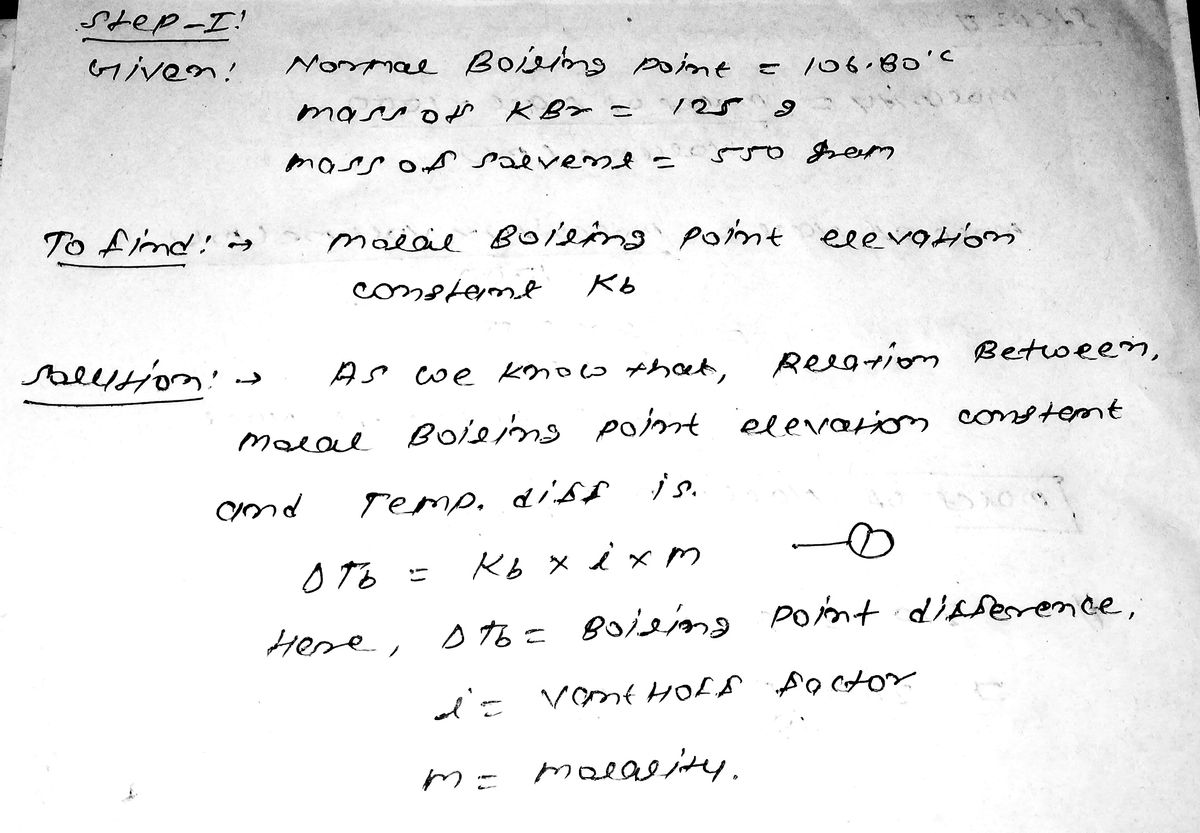 Step-I!
Given! Normal Boiling point = 106.80°C
mass of KBr = 125 g
mass of solvent = 550 gram
To find! → molal Boiling point elevation
constant Kb
Solution! → As we know that, Relation Between,
molal Boiling point elevation constant
and Temp. diff is.
ΔTb = Kb × i × m —①
Here, ΔTb = Boiling point difference,
i = Vant Hoff factor
m = molality.